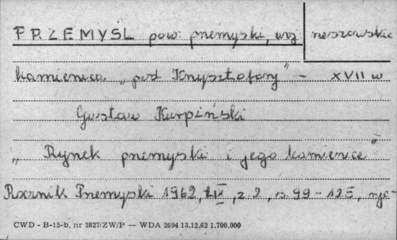 PRZEMYŚL pow: przemyski, woj rzeszowskie
kamienica "pod Krzysztofory" – XVII w
Gustaw Karpiński
"Rynek przemyski i jego kamienice"
Rocznik Przemyski 1962, IX, z. 2, s. 99-125, ryc-
CWD - B-15-b, nr 2827/ZW/P — WDA 2694 13.12.62 1.700.000